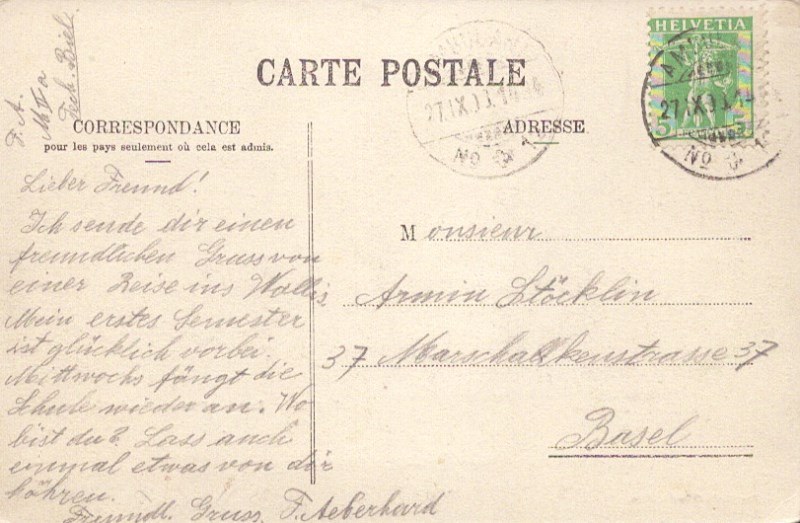 HELVETIA
5
AMBULANT
27.IX.13.14
No
AMB
27.IX.13.14
No
CARTE POSTALE
F. A.
Tech. Biel
CORRESPONDANCE
pour les pays seulement où cela est admis.
ADRESSE
Lieber Freund!
Ich sende dir einen
freundlichen Gruss von
einer Reise ins Wallis
Mein erstes Semester
ist glücklich vorbei.
Mittwochs fängt die
Schule wieder an. Wo
bist du? Lass auch
einmal etwas von dir
höhren.
Freundl. Gruss, F. Aeberhard
Monsieur
Armin Stöcklin
37 Marschalkenstrasse 37
Basel